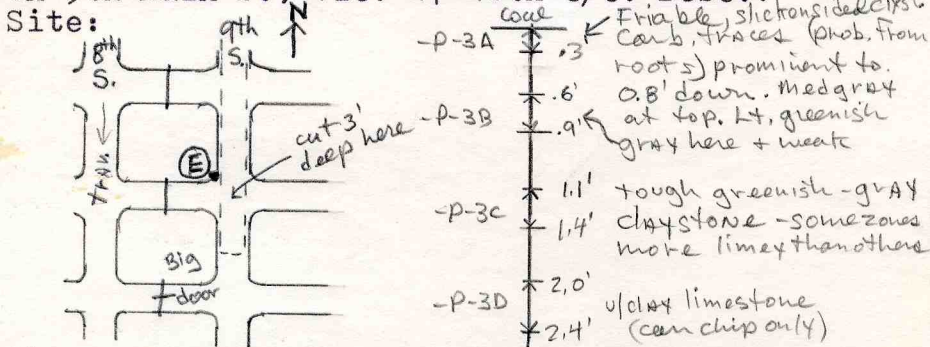 Site:
N
8th
S.
9th
S.
tran
E
cut 3'
deep here
Big
door
coal
-P-3A
.3
Friable, slickensided clyst.
Carb. traces (prob. from
roots) prominent to
0.8' down. Med gray
at top. Lt. greenish
gray here + weak
.6'
-P-3B
.9'
1.1'
-P-3C
1.4'
tough greenish-gray
claystone - some zones
more limey than others
2.0'
-P-3D
2.4'
u/clay limestone
(can chip only)